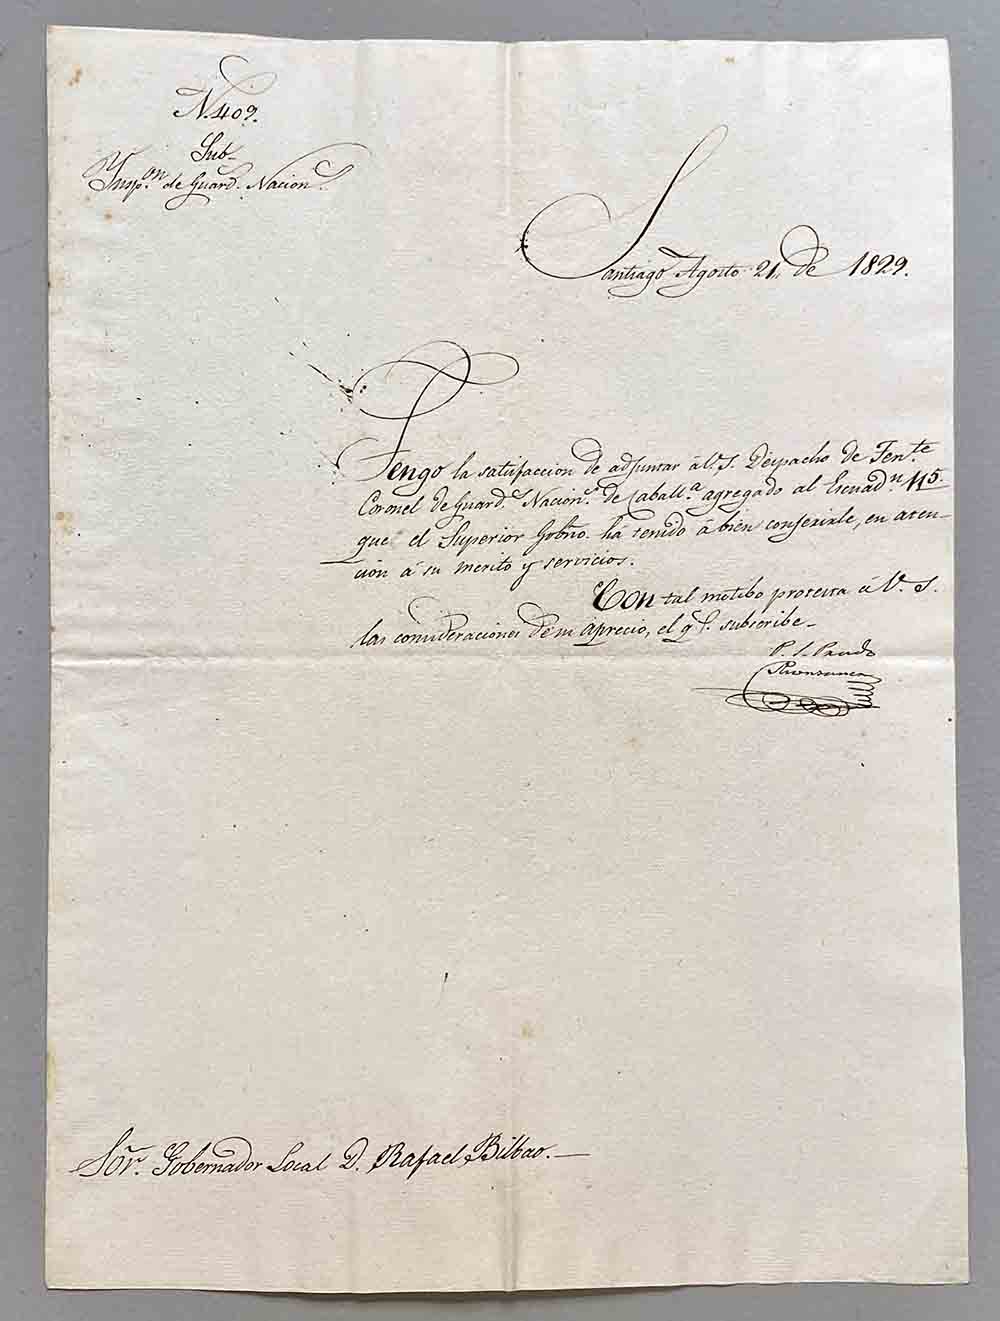 N. 409.
Sub-
Insp.on de Guard.s Nacion.s
Santiago Agosto 21. de 1829.
Tengo la satisfaccion de adjuntar á V. S. Despacho de Ten.te
Coronel de Guard.s Nacion.s de Caball.a agregado al Escuad.n N 5.
que el Superior Gobño. ha tenido á bien conferirle, en aten-
cion á su merito y servicios.
Con tal motibo protexta á V. S.
las consideraciones de su aprecio, el q.e subscribe-
P. J. Prado
Sor. Gobernador Local D. Rafael Bilbao.-